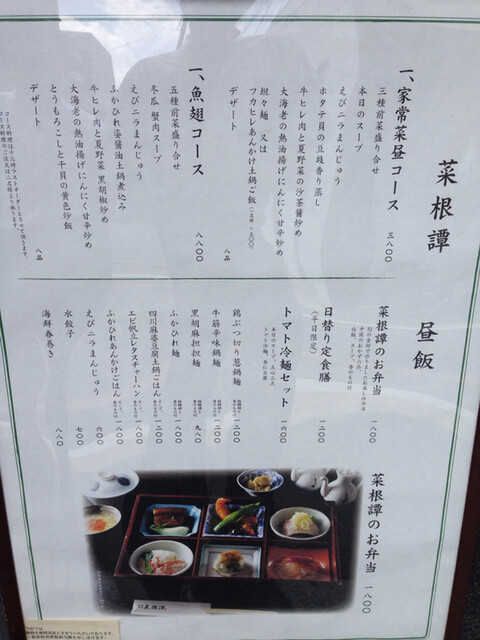 菜根譚
一、家常菜昼コース 三八〇〇
三種前菜盛り合せ
本日のスープ
えびニラまんじゅう
ホタテ貝の豆豉香り蒸し
牛ヒレ肉と夏野菜の沙茶醤炒め
大海老の熱油揚げにんにく甘辛炒め
坦々麺 又は
フカヒレあんかけ土鍋ご飯
デザート
八品
一、魚翅コース 八八〇〇
五種前菜盛り合せ
冬瓜 蟹肉スープ
えびニラまんじゅう
ふかひれ姿醤油土鍋煮込み
牛ヒレ肉と夏野菜 黒胡椒炒め
大海老の熱油揚げにんにく甘辛炒め
とうもろこしと干貝の黄色炒飯
デザート
八品
昼飯
菜根譚のお弁当 一八〇〇
日替り定食膳 一二〇〇
(平日限定)
トマト冷麺セット 一六〇〇
鶏ぶつ切り葱鍋麺 一二〇〇
牛筋辛味鍋麺 一二〇〇
黒胡麻担担麺 九八〇
ふかひれ麺 一八〇〇
四川麻婆豆腐土鍋ごはん 一二〇〇
エビ帆立レタスチャーハン 一二〇〇
ふかひれあんかけごはん 一八〇〇
えびニラまんじゅう 六〇〇
水餃子 七〇〇
海鮮春巻き 八八〇
菜根譚のお弁当 一八〇〇